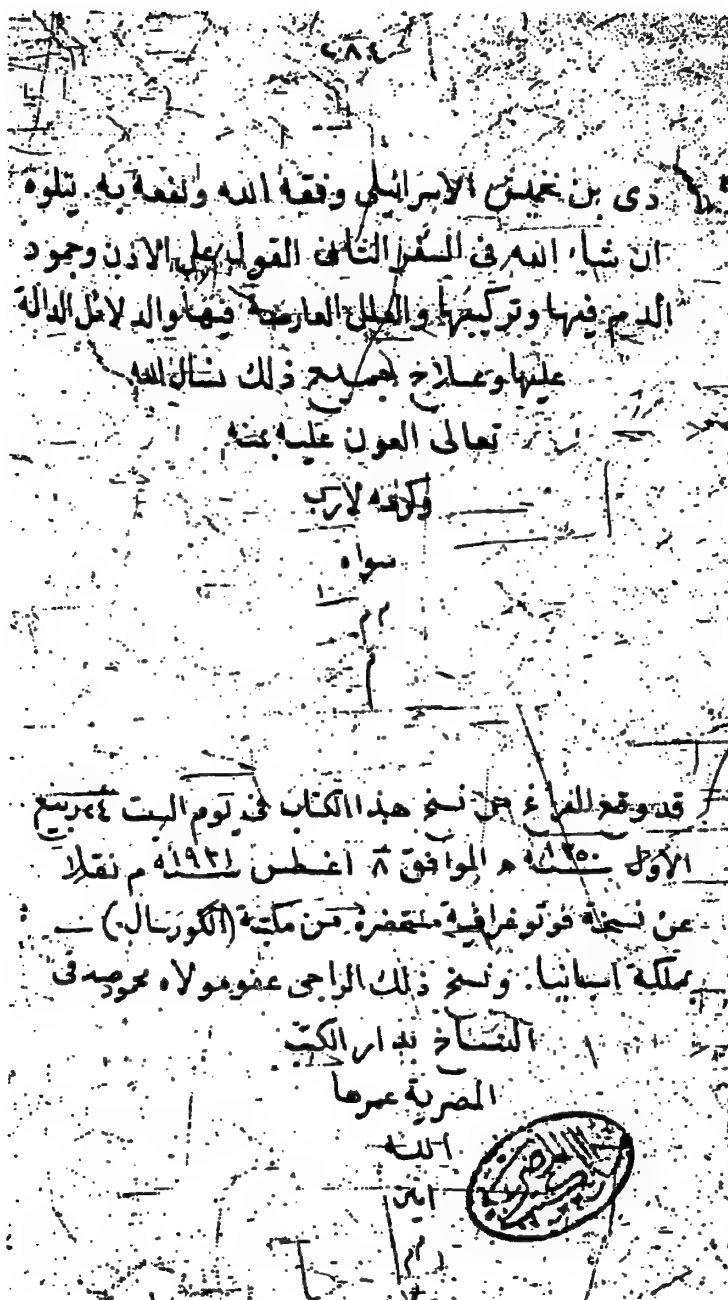 ٢٨٤
دى بن نخميس الاسرائيلى وفقه الله ونفعه به. يتلوه
ان شاء الله فى السفر الثانى القول على الاذن وجمود
الدم فيها وتركيبها والعلل العارضة فيها والدلائل الدالة
عليها وعلاج جميع ذلك نسأل الله
تعالى العون عليه بمنه
وكرمه لا رب
سواه
م م
م
قد وقع الفراغ من نسخ هذا الكتاب فى يوم السبت ٢٤ ربيع
الأول سنة ١٣٥٠ ه الموافق ٨ اغسطس سنة ١٩٣١ م نقلا
عن نسخة فوتوغرافية مستحضرة من مكتبة (الكوريال)
بمملكة اسبانيا. ونسخ ذلك الراجى عفو مولاه محمود صدقى
النساخ بدار الكتب
المصرية عمرها
الله
امين
م م